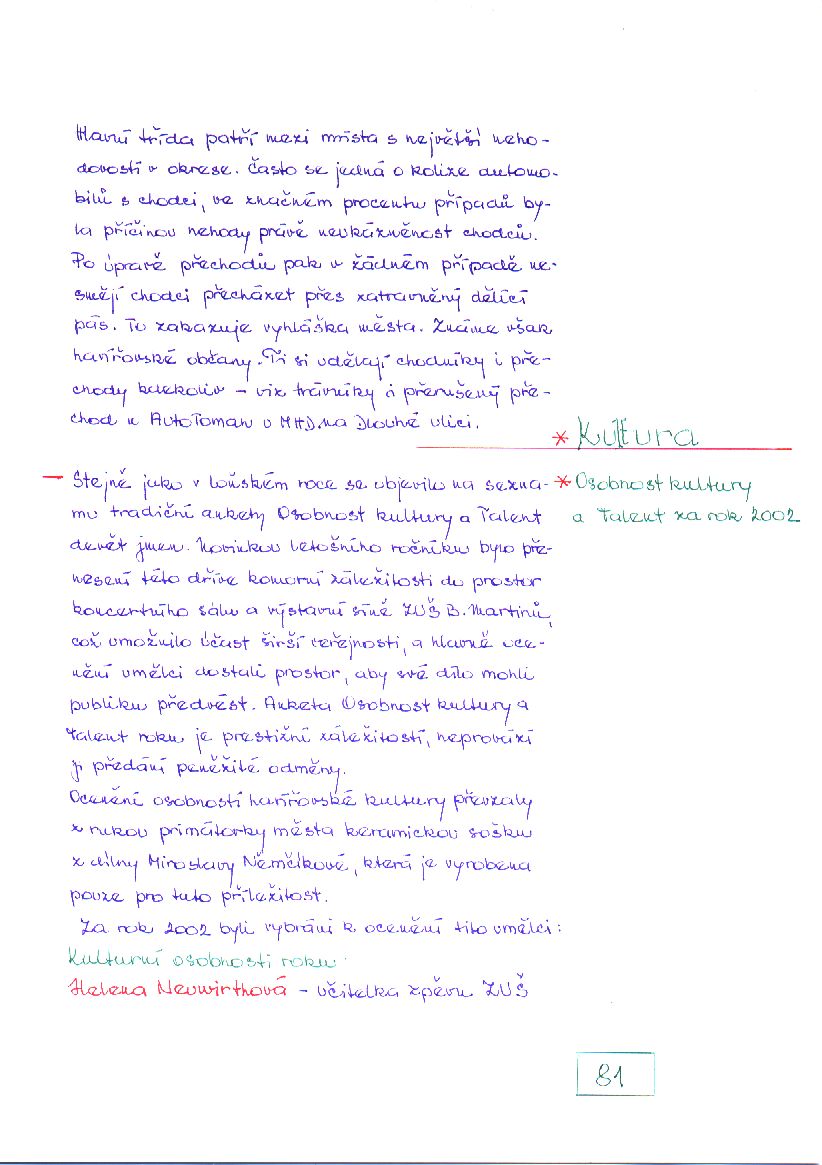 Hlavní třída patří mezi místa s největší neho-
dovostí v okrese. Často se jedná o kolize automo-
bilů s chodci, ve značném procentu případů by-
la příčinou nehody právě neukázněnost chodců.
Po úpravě přechodů pak v žádném případě ne-
smějí chodci přecházet přes zatravněný dělící
pás. To zakazuje vyhláška města. Známe však
havířovské občany. Ti si udělají chodníky i pře-
chody kdekoliv – viz trávníky a přerušený pře-
chod u AutoTomanu u MHD na Dlouhé ulici.
* Kultura
– Stejně jako v loňském roce se objevilo na sezna-
mu tradiční ankety Osobnost kultury a Talent
devět jmen. Novinkou letošního ročníku bylo pře-
nesení této dříve komorní záležitosti do prostor
koncertního sálu a výstavní síně ZUŠ B. Martinů,
což umožnilo účast širší veřejnosti, a hlavně oce-
nění umělci dostali prostor, aby své dílo mohli
publiku předvést. Anketa Osobnost kultury a
Talent roku je prestižní záležitostí, neprovází
ji předání peněžité odměny.
Ocenění osobností havířovské kultury převzaly
z rukou primátorky města keramickou sošku
z dílny Miroslavy Němčíkové, která je vyrobena
pouze pro tuto příležitost.
Za rok 2002 byli vybráni k ocenění tito umělci:
Kulturní osobností roku
Helena Neuwirthová – učitelka zpěvu ZUŠ
* Osobnost kultury
a Talent za rok 2002
81